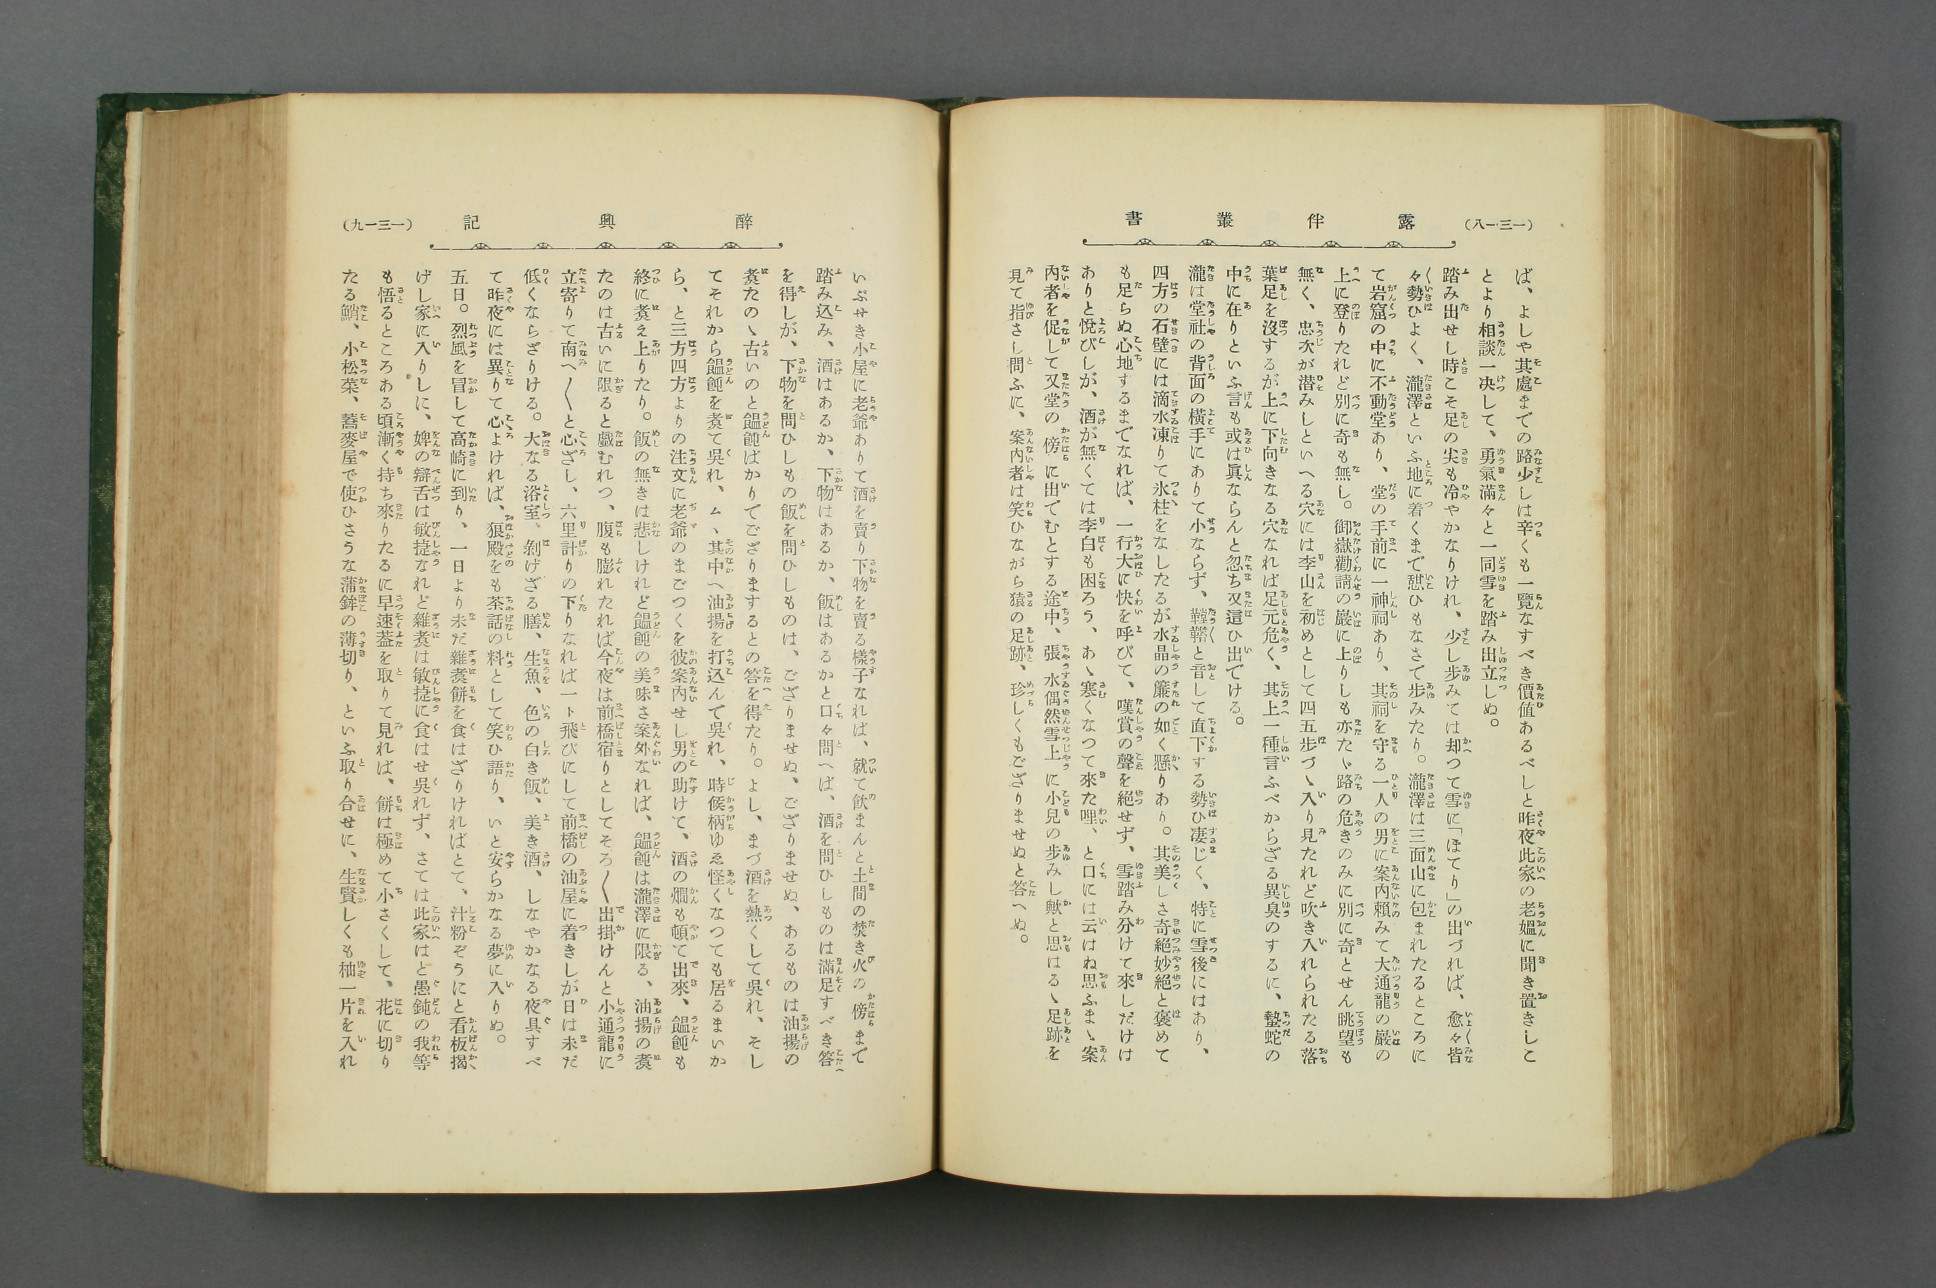 (一三一八)
露伴叢書
ば、よしや其處までの路少しは辛くも一覽なすべき價値あるべしと昨夜此家の老媼に聞き置きしこ
とより相談一决して、勇氣滿々と一同雪を踏み出立しぬ。
踏み出せし時こそ足の尖も冷やかなりけれ、少し歩みては却つて雪に「ほてり」の出づれば、愈々皆
々勢ひよく、瀧澤といふ地に着くまで憇ひもなさで歩みたり。瀧澤は三面山に包まれたるところに
て岩窟の中に不動堂あり、堂の手前に一神祠あり、其祠を守る一人の男に案内頼みて大通龍の巖の
上に登りたれど別に奇も無し。御嶽勸請の巖に上りしも亦たゞ路の危きのみに別に奇とせん眺望も
無く、忠次が潜みしといへる穴には李山を初めとして四五歩づゝ入り見たれど吹き入れられたる落
葉足を沒するが上に下向きなる穴なれば足元危く、其上一種言ふべからざる異臭のするに、蟄蛇の
中に在りといふ言も或は眞ならんと忽ち又這ひ出でける。
瀧は堂社の背面の横手にありて小ならず、鞺鞳と音して直下する勢ひ凄じく、特に雪後にはあり、
四方の石壁には滴水凍りて氷柱をなしたるが水晶の簾の如く懸りあり。其美しさ奇絕妙絕と褒めて
も足らぬ心地するまでなれば、一行大に快を呼びて、嘆賞の聲を絕せず、雪踏み分けて來しだけは
ありと悅びしが、酒が無くては李白も困ろう、あゝ寒くなつて來た哩、と口には云はね思ふまゝ案
內者を促がして又堂の傍に出でむとする途中、張水偶然雪上に小兒の歩みし歟と思はるゝ足跡を
見て指さし問ふに、案內者は笑ひながら猿の足跡、珍しくもござりませぬと答へぬ。
醉興記
(一三一九)
いぶせき小屋に老爺ありて酒を賣り下物を賣る樣子なれば、就て飲まんと土間の焚き火の傍まで
踏み込み、酒はあるか、下物はあるか、飯はあるかと口々問へば、酒を問ひしものは滿足すべき答
を得しが、下物を問ひしもの飯を問ひしものは、ござりませぬ、ござりませぬ、あるものは油揚の
煑たのゝ古いのと饂飩ばかりでござりまするとの答を得たり。よし、まづ酒を熱くして吳れ、そし
てそれから饂飩を煑て吳れ、ムヽ其中へ油揚を打込んで吳れ、時候柄ゆゑ怪くなつても居るまいか
ら、と三方四方よりの注文に老爺のまごつくを彼案內せし男の助けて、酒の燗も頓て出來、饂飩も
終に煑え上りたり。飯の無きは悲しけれど饂飩の美味さ案外なれば、饂飩は瀧澤に限る、油揚の煑
たのは古いに限ると戲むれつ、腹も膨れたれば今夜は前橋宿りとしてそろ〱出掛けんと小通龍に
立寄りて南へ〱と心ざし、六里計りの下りなれば一ト飛びにして前橋の油屋に着きしが日は未だ
低くならざりける。大なる浴室、剝げざる膳、生魚、色の白き飯、美き酒、しなやかなる夜具すべ
て昨夜には異りて心よければ、狼殿をも茶話の料として笑ひ語り、いと安らかなる夢に入りぬ。
五日。烈風を冒して高崎に到り、一日より未だ雜煑餅を食はざりければとて、汁粉ぞうにと看板揭
げし家に入りしに、婢の辯舌は敏捷なれど雜煑は敏捷に食はせ吳れず、さては此家はど愚鈍の我等
も悟るところある頃漸く持ち來りたるに早速葢を取りて見れば、餅は極めて小さくして、花に切り
たる鮹、小松菜、蕎麥屋で使ひさうな蒲鉾の薄切り、といふ取り合せに、生賢しくも柚一片を入れ